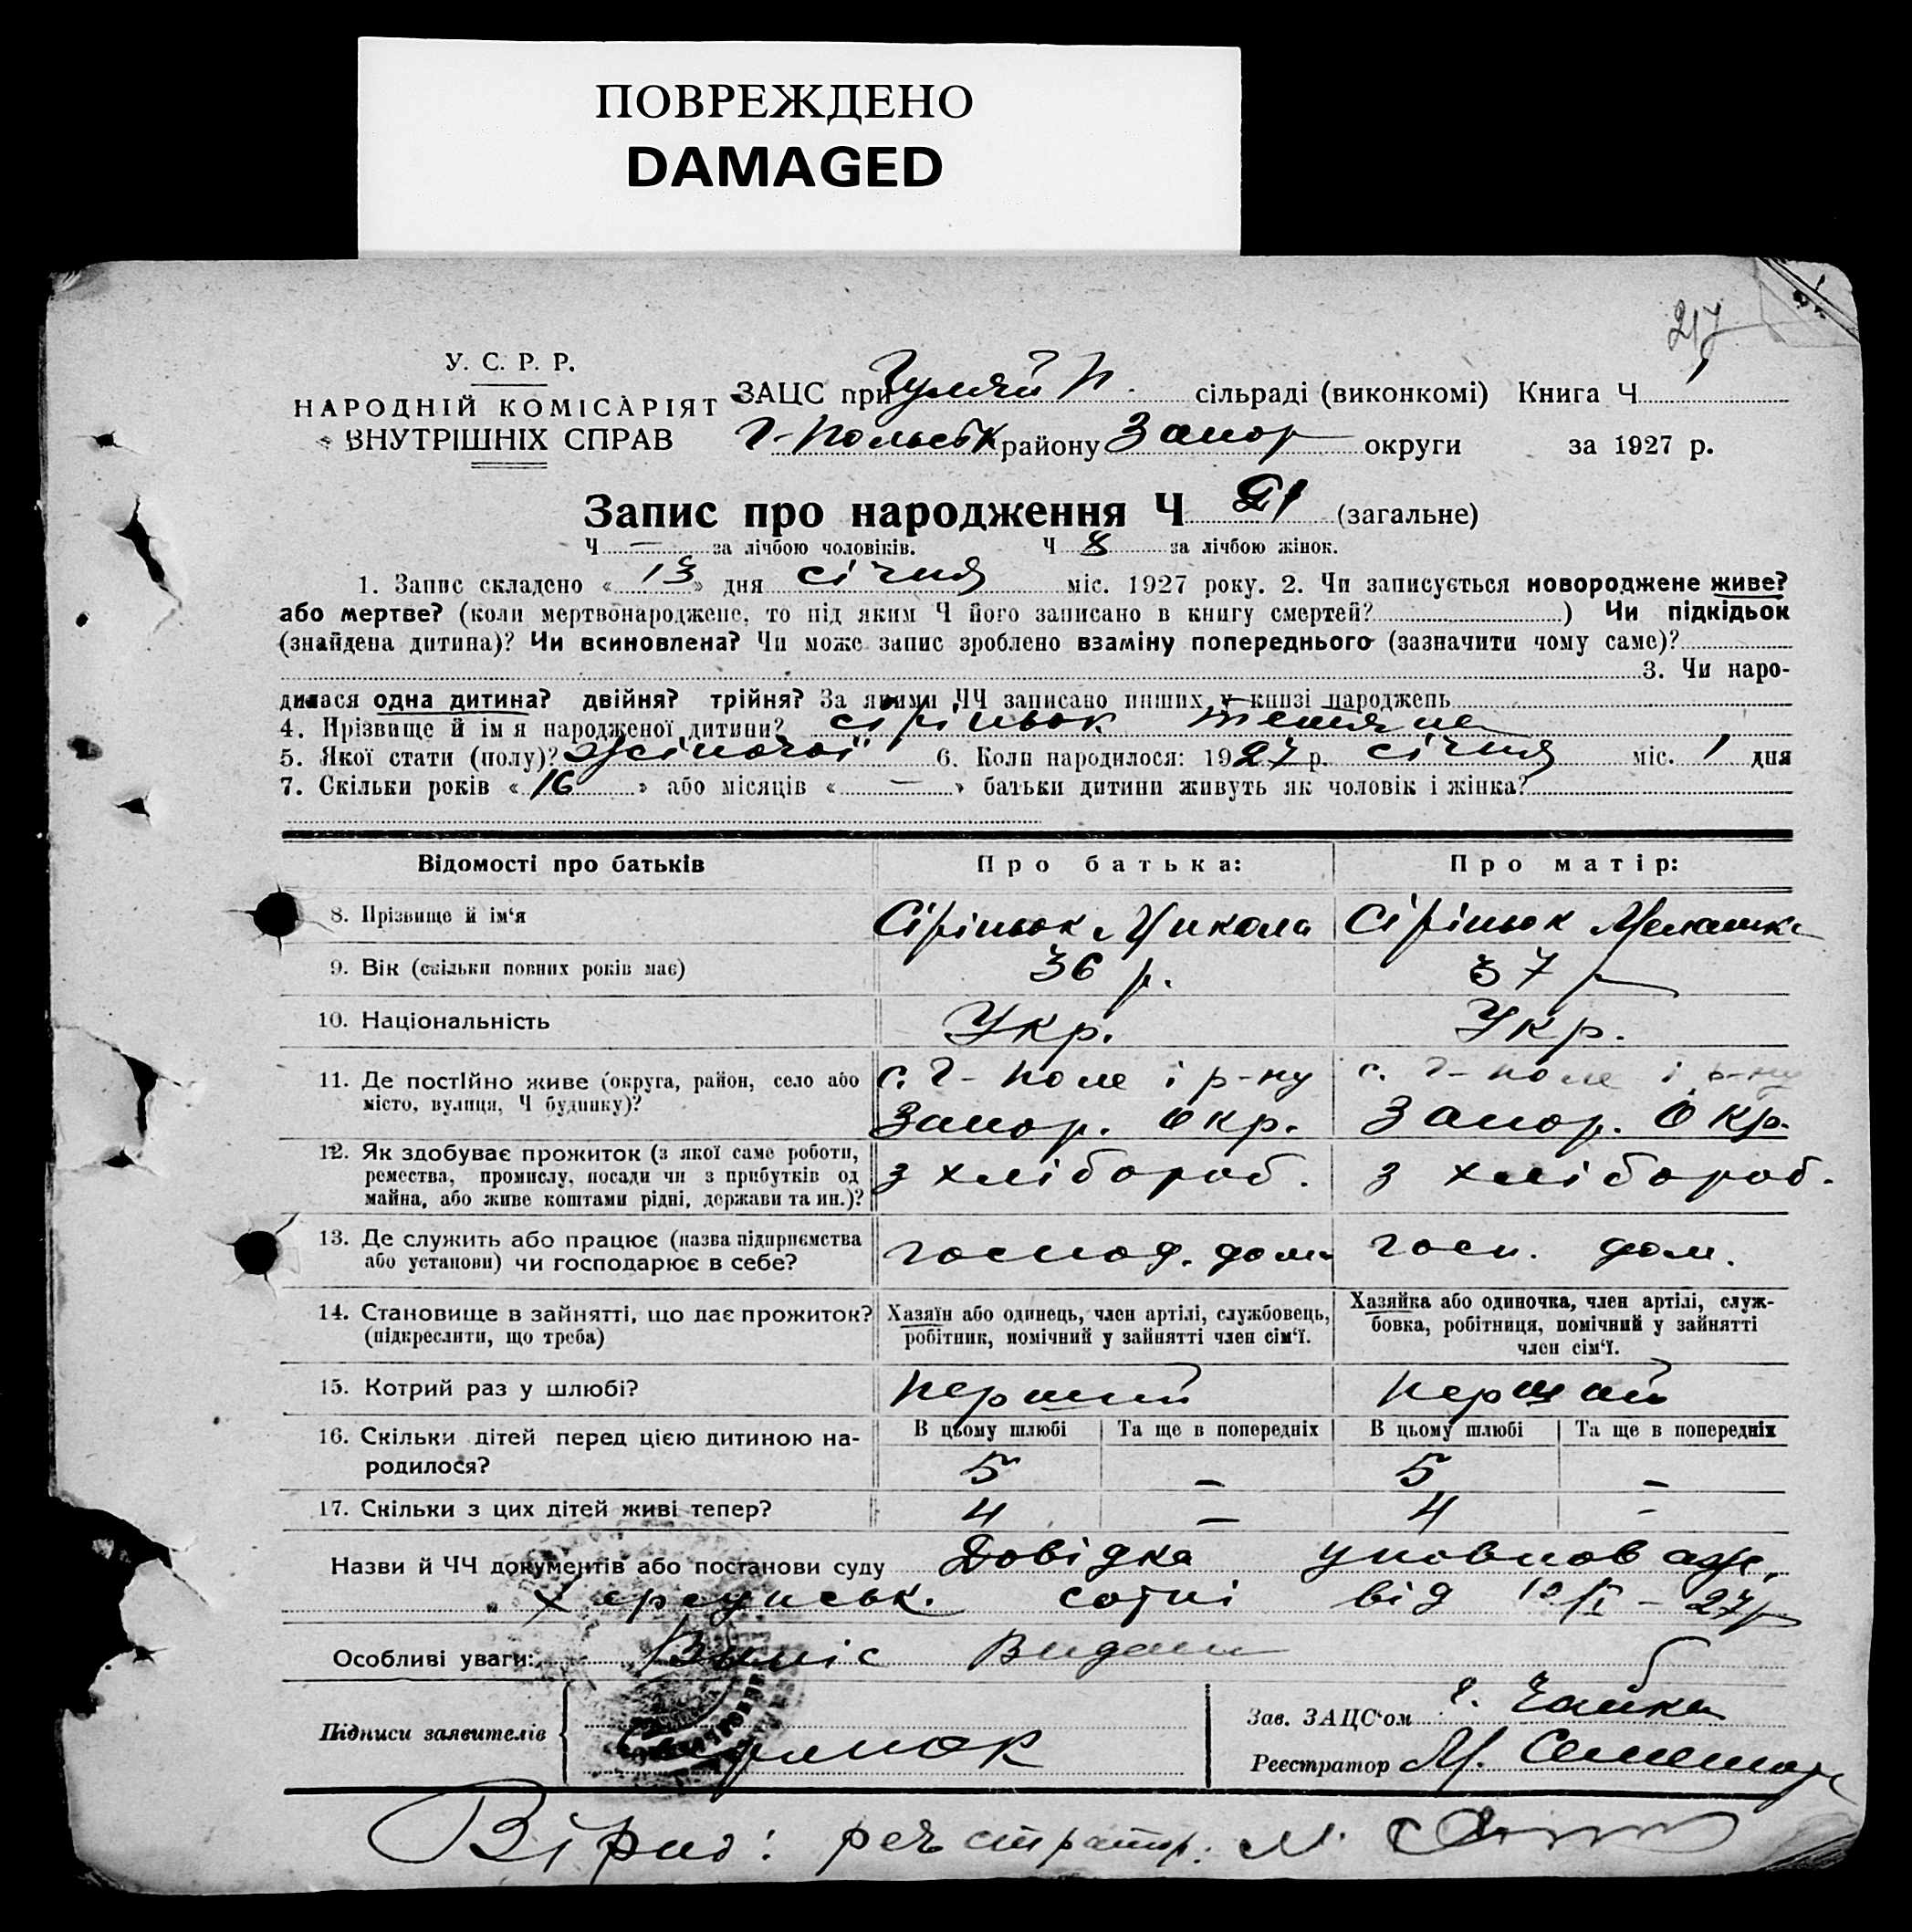 ПОВРЕЖДЕНО
DAMAGED
217
У. С. Р. Р.
НАРОДНІЙ КОМІСАРІЯТ
ВНУТРІШНІХ СПРАВ
ЗАЦС при Гуляй П. сільраді (виконкомі) Книга Ч 1
Г-Польськ району Запор округи за 1927 р.
Запис про народження Ч 21 (загальне)
Ч — за лічбою чоловіків. Ч 8 за лічбою жінок.
1. Запис складено « 13 » дня січня міс. 1927 року. 2. Чи записується новороджене живе?
або мертве? (коли мертвонароджене, то під яким Ч його записано в книгу смертей? ) Чи підкідьок
(знайдена дитина)? Чи всиновлена? Чи може запис зроблено взаміну попереднього (зазначити чому саме)?
3. Чи наро-
дилася одна дитина? двійня? трійня? За якими ЧЧ записано инших у книзі народжень
4. Прізвище й ім я народженої дитини? Сіріньок Тетяна
5. Якої стати (полу)? жіночої 6. Коли народилося: 1927 р. січня міс. 1 дня
7. Скільки років « 16 » або місяців « — » батьки дитини живуть як чоловік і жінка?
Відомості про батьків Про батька: Про матір:
8. Прізвище й ім‘я Сіріньок Микола Сіріньок Мелашка
9. Вік (скільки повних років має) 36 р. 37 р
10. Національність Укр. Укр.
11. Де постійно живе (округа, район, село або місто, вулиця, Ч будинку)? с. Г-Поле і р-ну Запор. Окр. с. Г-Поле і р-ну Запор. Окр.
12. Як здобуває прожиток (з якої саме роботи,
ремества, промислу, посади чи з прибутків од
майна, або живе коштами рідні, держави та ин.)? з хлібороб. з хлібороб.
13. Де служить або працює (назва підприємства
або установи) чи господарює в себе? господ. дом. госп. дом.
14. Становище в зайнятті, що дає прожиток?
(підкреслити, що треба)
Хазяїн або одинець, член артілі, службовець,
робітник, помічний у зайнятті член сім‘ї.
Хазяйка або одиночка, член артілі, служ-
бовка, робітниця, помічний у зайнятті
член сім‘ї.
15. Котрий раз у шлюбі? перший перший
В цьому шлюбі Та ще в попередніх В цьому шлюбі Та ще в попередніх
16. Скільки дітей перед цією дитиною на-
родилося? 5 — 5 —
17. Скільки з цих дітей живі тепер? 4 — 4 -
Назви й ЧЧ документів або постанови суду Довідка уповноваж.
сотні від 12/I – 27р
Особливі уваги: Випис Видан
Підписи заявителів
Зав. ЗАЦС‘ом Чайка
Реєстратор М.
Вірно: реєстратор: М.